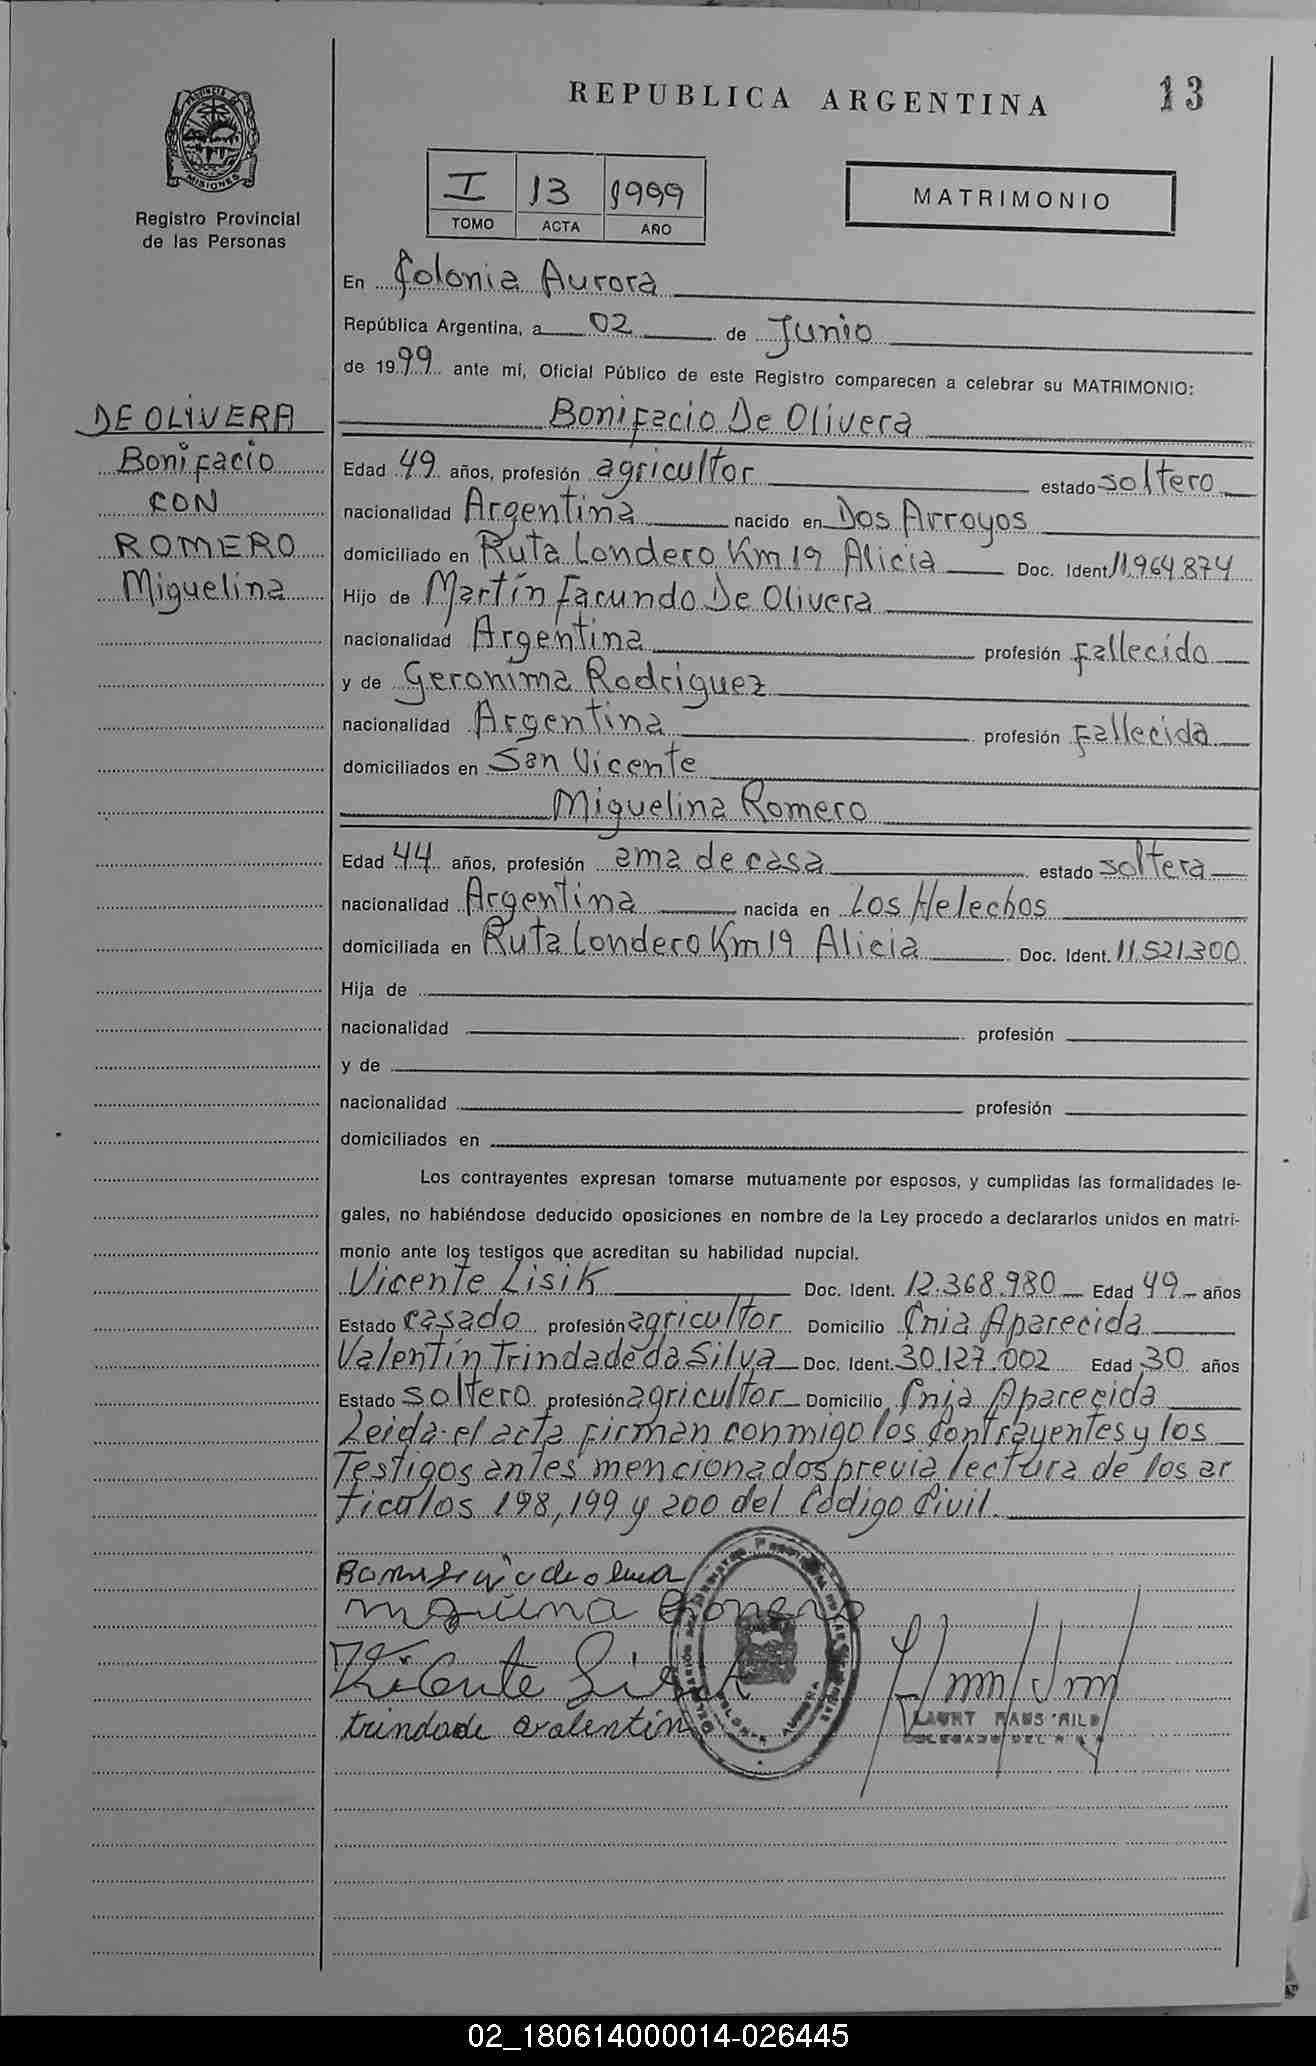 REPUBLICA ARGENTINA
13
PROVINCIA DE
MISIONES
Registro Provincial
de las Personas
I 13 1999
TOMO ACTA AÑO
MATRIMONIO
En Colonia Aurora
República Argentina, a 02 de Junio
de 1999 ante mí, Oficial Público de este Registro comparecen a celebrar su MATRIMONIO:
DE OLIVERA
Bonifacio
CON
ROMERO
Miguelina
Bonifacio De Olivera
Edad 49 años, profesión agricultor estado soltero
nacionalidad Argentina nacido en Dos Arroyos
domiciliado en Ruta Londero Km 19 Alicia Doc. Ident. 11.964.874
Hijo de Martín Facundo De Olivera
nacionalidad Argentina profesión fallecido
y de Geronima Rodriguez
nacionalidad Argentina profesión fallecida
domiciliados en San Vicente
Miguelina Romero
Edad 44 años, profesión ama de casa estado soltera
nacionalidad Argentina nacida en Los Helechos
domiciliada en Ruta Londero Km 19 Alicia Doc. Ident. 11.521.300
Hija de
nacionalidad profesión
y de
nacionalidad profesión
domiciliados en
Los contrayentes expresan tomarse mutuamente por esposos, y cumplidas las formalidades le-
gales, no habiéndose deducido oposiciones en nombre de la Ley procedo a declararlos unidos en matri-
monio ante los testigos que acreditan su habilidad nupcial.
Vicente Lisik Doc. Ident. 12.368.980 Edad 49 años
Estado casado profesión agricultor Domicilio Cnia Aparecida
Valentín Trindade da Silva Doc. Ident. 30.127.002 Edad 30 años
Estado soltero profesión agricultor Domicilio Cnia Aparecida
Leida el acta firman conmigo los contrayentes y los
Testigos antes mencionados previa lectura de los ar
ticulos 198, 199 y 200 del Codigo Civil.
Vicente Lisik
trindade valentin
02_180614000014-026445